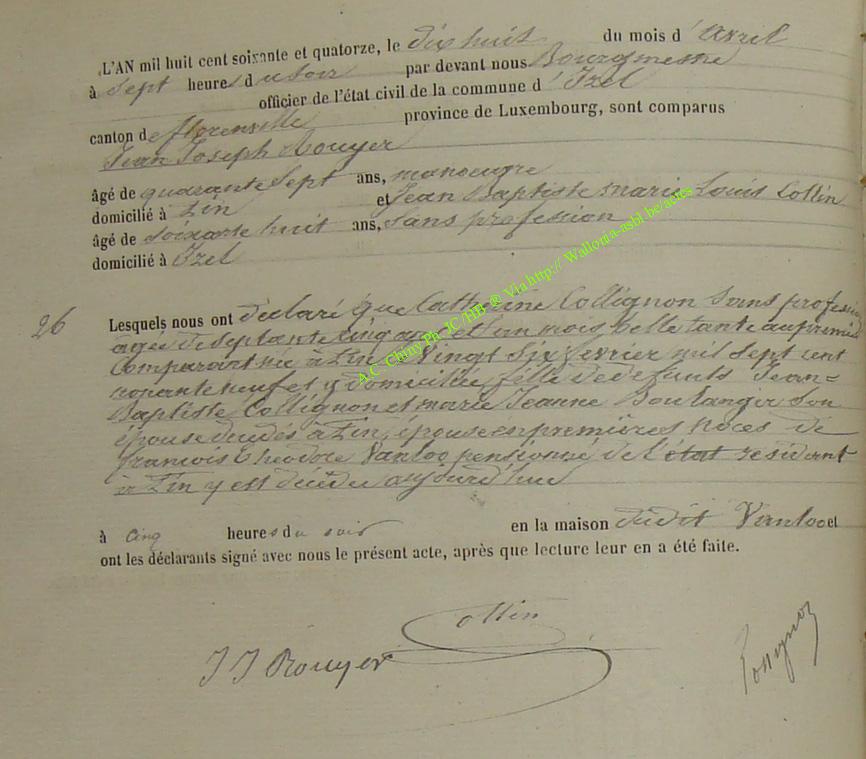 L'AN mil huit cent soixante et quatorze, le dix huit du mois d'Avril
à sept heures du soir par devant nous Bourgmestre
officier de l'état civil de la commune d'Izel
canton de florenville province de Luxembourg, sont comparus
Jean Joseph Rouyer
âgé de quarante sept ans, manoeuvre
domicilié à Pin et Jean Baptiste Marie Louis Collin
âgé de soixante huit ans, sans profession
domicilié à Izel
26
Lesquels nous ont déclaré que Catherine Collignon sans profession
agée de septante cinq ans et un mois belle tante au premier
Comparant née à Pin le Vingt Six fevrier mil sept cent
nonante neuf et y domiciliée, fille de defunts Jean-
Baptiste Collignon et marie Jeanne Boulanger son
épouse decedés à Pin, épouse en premières noces de
francois theodore Vanloo pensionné de l'état residant
à Pin y est decedée aujourd'hui
à cinq heures du soir en la maison dudit Vanloo et
ont les déclarants signé avec nous le présent acte, après que lecture leur en a été faite.
Collin
J J Rouyer
A.C. Chiny Ph JC/HB ® Via http:// Wallonia-asbl.be/actes